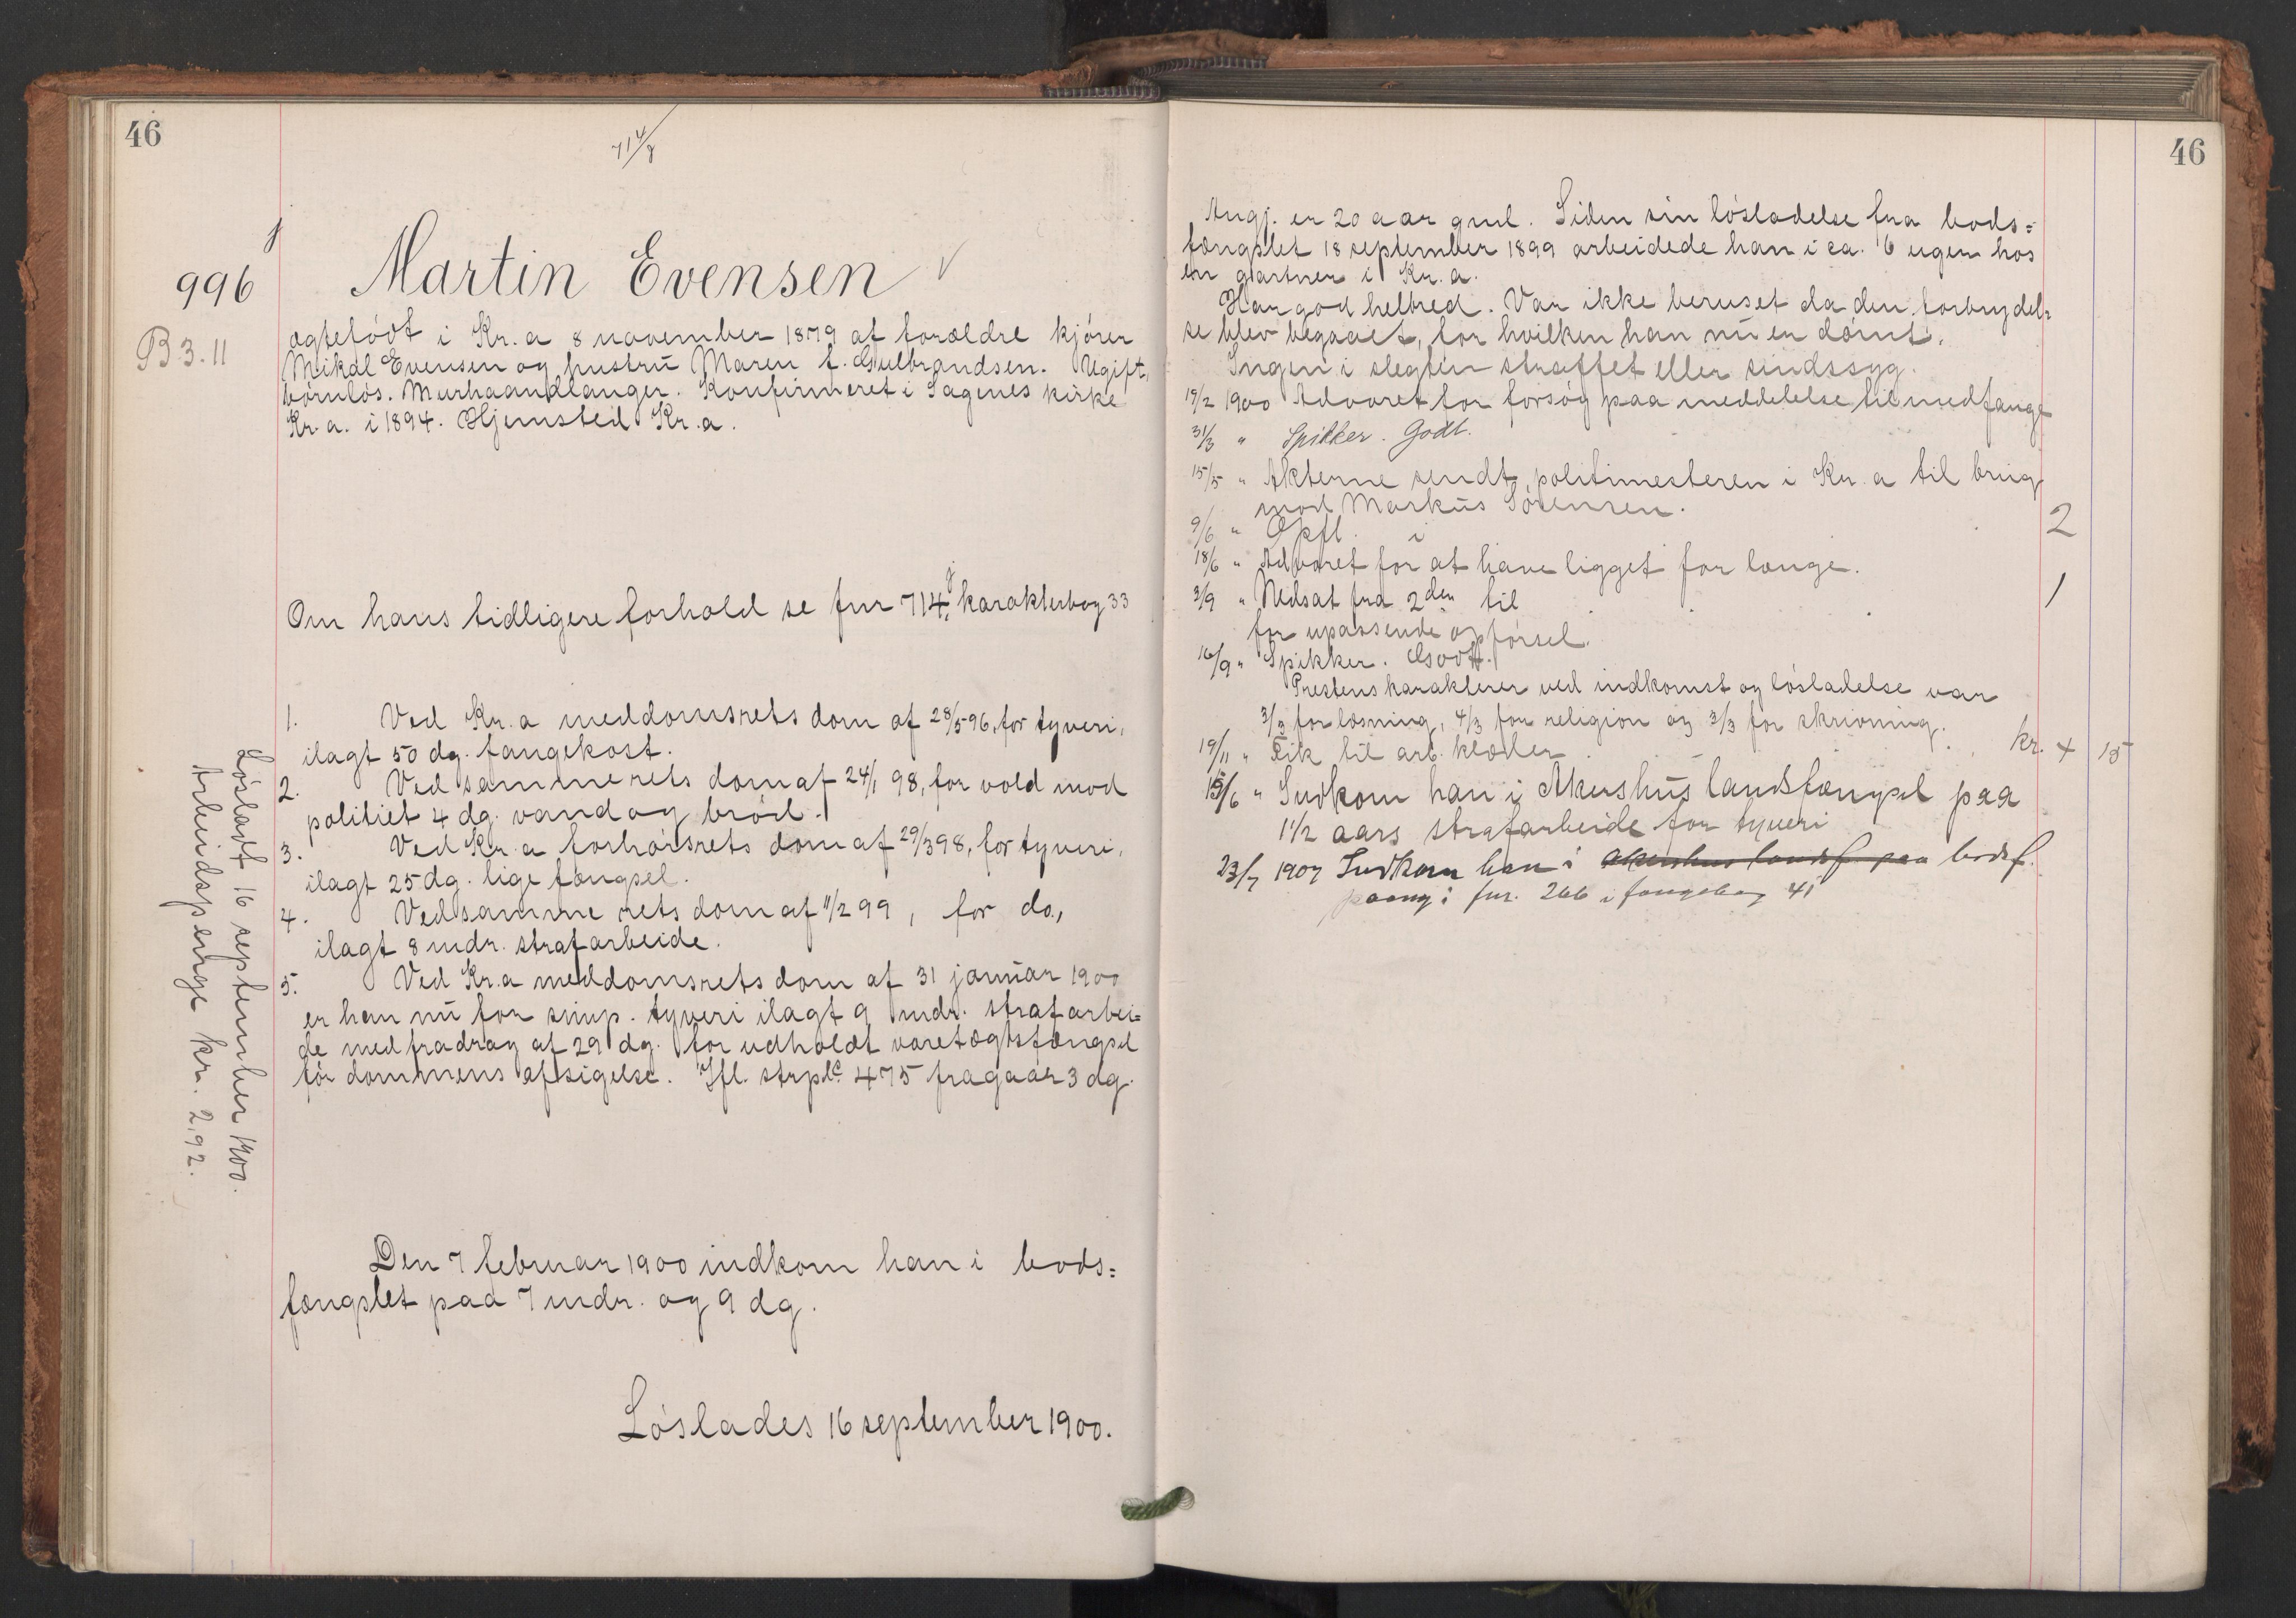 46
714/j
j
996
B 3. 11
Martin Evensen
ægtefödt i Kr.a 8 november 1879 af forældre kjörer
Mikal Evensen og hustru Maren f. Gulbrandsen. Ugift,
börnlös. Murhaandlanger. Konfirmeret i Sagenes kirke
Kr.a. i 1894. Hjemsted Kr.a.
Om hans tidligere forhold se fnr 714 j, karakterbog 33
1. Ved Kr.a meddomsrets dom af 28/5 96, for tyveri,
ilagt 50 dg. fangekost.
2. Ved samme rets dom af 24/1 98, for vold mod
politiet 4 dg. vand og bröd.
3. Ved Kr.a forhörsrets dom af 29/3 98, for tyveri,
ilagt 25 dg. lige fængsel.
4. Ved samme rets dom af 11/2 99, for do.,
ilagt 8 mdr. strafarbeide.
5. Ved Kr.a meddomsrets dom af 31 januar 1900
er han nu for simp. tyveri ilagt 9 mdr. strafarbei=
de med fradrag af 29 dg. for udholdt varetægtsfængsel
för dommens afsigelse. Ifl. strpl. § 475 fragaar 3 dg.
Lösladt 16 september 1900.
Arbeidspenge kr. 2,92.
Den 7 februar 1900 indkom han i bods=
fængslet paa 7 mdr. og 9 dg.
Löslades 16 september 1900.
46
Angj. er 20 aar gml. Siden sin lösladelse fra bods=
fængslet 18 september 1899 arbeidede han i ca. 6 uger hos
en gartner i Kr.a.
Har god helbred. Var ikke beruset da den forbrydel=
se blev begaaet, for hvilken han nu er dömt.
Ingen i slegten straffet eller sindssyg.
19/2 1900 Advaret for forsög paa meddelelse til medfange
31/3 " Spikker. Godt.
15/5 " Akterne sendt politimesteren i Kr.a til brug
mod Markus Sörensen.
9/6 " Opfl. i 2
18/6 " Advaret for at have ligget for længe.
3/9 " Nedsat fra 2den til 1
for upassende opförsel.
16/9 " Spikker. Godt.
Prestens karakterer ved indkomst og lösladelse var
3/3 for læsning, 4/3 for religion og 3/3 for skrivning.
19/11 " Fik til arb. klæder kr. 4 15
15/6 " Indkom han i Akershus landsfængsel paa
1 1/2 aars strafarbeide for tyveri
23/7 1907 Indkom han i Akershus landsf. paa bodsf.
paany: fnr. 266 i fangebog 41